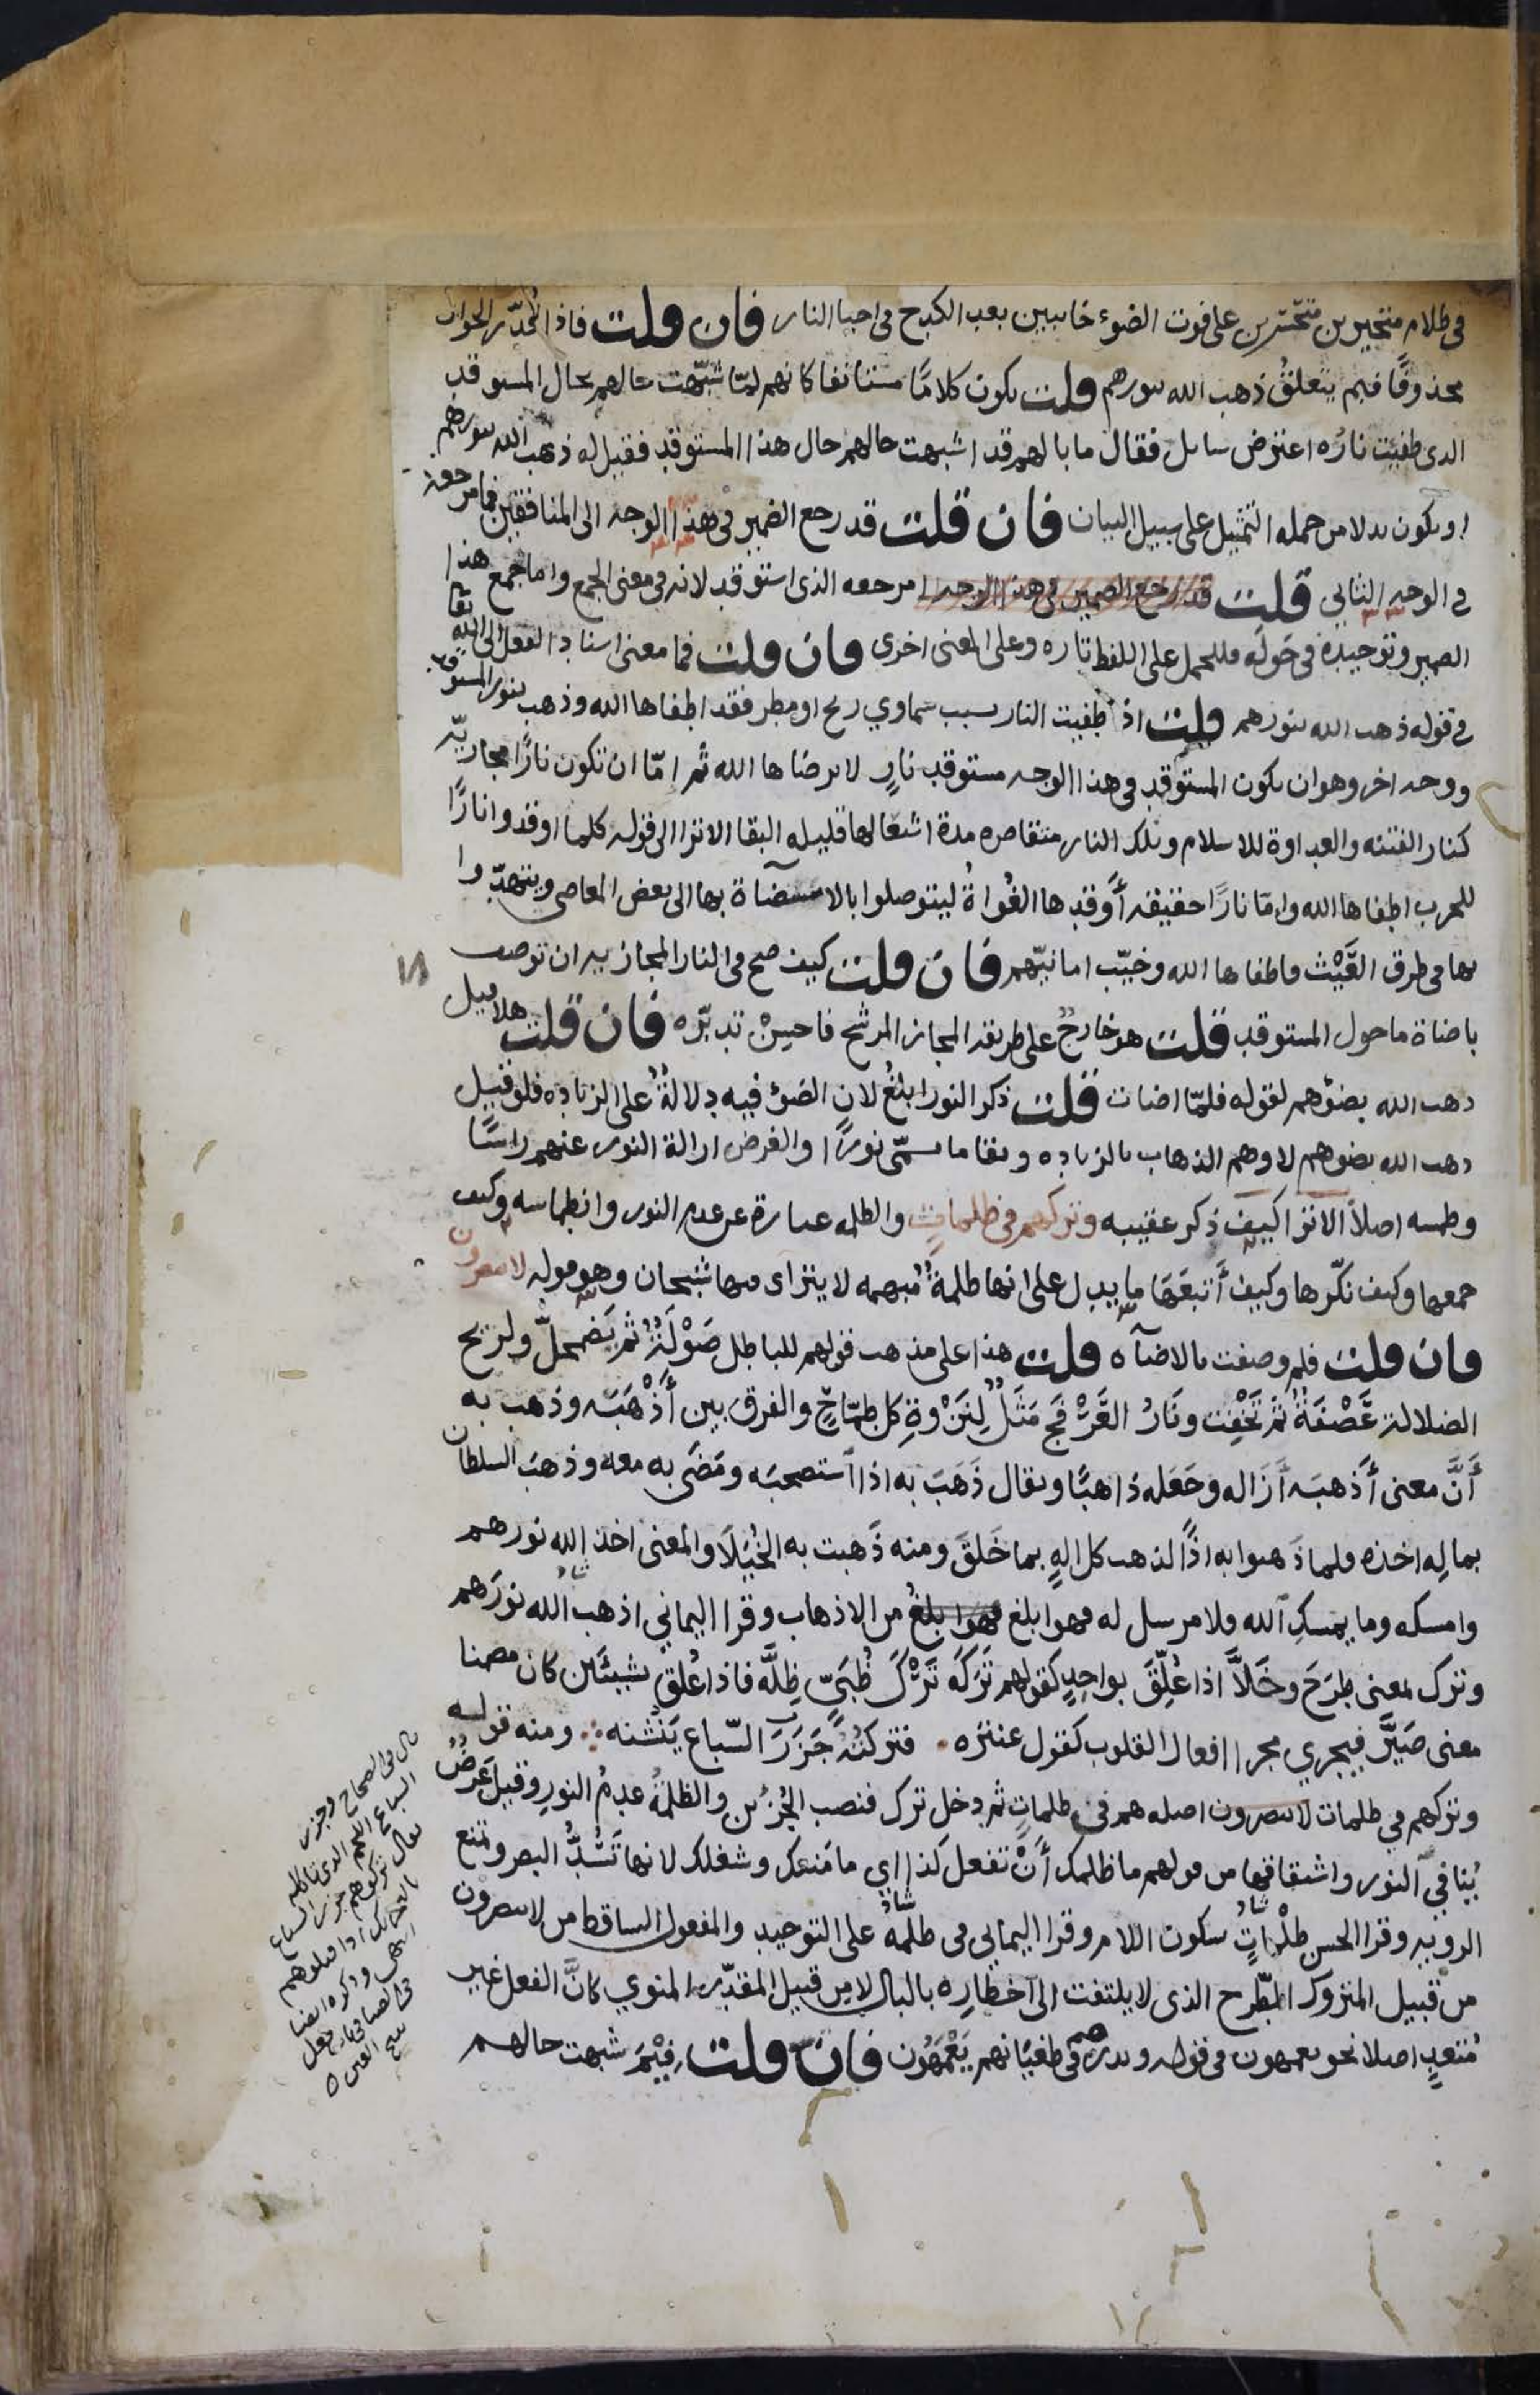 في ظلام متحيرين متحسرين على فوت الضوء خايبين بعد الكدح في احيا النار فان قلت فاذا قُدّر الجواب
محذوفًا فبم يتعلقُ ذهب الله بنورهم قلت يكون كلامًا مستانفا كانهم لمّا شبّهت حالهم بحال المستوقد
الدى طفئِت نارُه اعترض سايل فقال ما بالهم قد اشبهت حالهم حال هذا المستوقد فقيل له ذهب الله بنورهم
او يكون بدلا من جمله التمثيل على سبيل البيان فان قلت قد رجع الضمير في هذا الوجه الى المنافقين فما مرجعه
في الوجه الثاني قلت قد رجع الضمير في هذا الوجه ا مرجعه الذى استوقد لانه في معنى الجمع واما جمع هذا
الضمير وتوحيده في حَولَه فللحمل على اللفظ تاره وعلى المعنى اخرى فان قلت فما معنى اسناد الفعل الى الله تعا
في قوله ذهب الله بنورهم قلت اذا طفيت النار بسبب سماوي ريح او مطر فقد اطفاها الله وذهب بنور المستوقد
ووجه اخر وهو ان يكون المستوقِد في هذا الوجه مستوقد نارٍ لا يرضاها الله ثم امّا ان تكون نارًا مجازيّه
كنار الفتنه والعداوة للاسلام وتلك النار متقاصره مدة اشتعالها قليله البقا الا ترا الى قوله كلما اوقدوا نارًا
للحرب اطفاها الله وامّا نارًا حقيقه أوقدها الغُواةُ ليتوصلوا بالاستضآة بها الى بعض المعاصي ويتهدّوا
بها في طرق العَيْث فاطفاها الله وخيّب امانيّهم فان قلت كيف صح في النار المجازيه ان توصف
باضاة ما حول المستوقد قلت هو خارجٌ على طريقه المجاز المرشح فاحسِنْ تدبّره فان قلت هلا قيل
ذهب الله بضوْهم لقوله فلمّا اضات قلت ذكر النور ابلغُ لان الضوْ فيه دلالةٌ على الزياده فلو قيل
ذهب الله بضوهم لاوهم الذهاب بالزياده وبقا ما يسمّى نورًا والغرض ازالة النور عنهم راسًا
وطمسه اصلاً الا ترا كيف ذكر عقيبه وتركهم في ظلماتٍ والظلمه عبارة عن عدم النور وانطماسه وكيف
جمعها وكيف نكّرها وكيف أتبعَهَا ما يدل على انها ظلمةٌ مُبهمه لا يتراى فيها شبحان وهو قوله لا يبصرون
فان قلت فلم وصفت بالاضآه قلت هذا على مذهب قولهم للباطل صَوْلَةٌ ثم يَضمحلُّ ولريح
الضلالة عَصْفَةٌ ثم تَخْفِت ونَارُ العَرْفَج مَثَلٌ لِنَزْوةِ كل طمّاحٍ والفرق بين أَذْهَبَه وذهب به
أَنَّ معنى أَذهبَه أَزَاله وجَعَله ذاهبًا ويقال ذَهَبَ به اذا استصحبَه ومَضَى به معه وذهبَ السلطان
بمالِه اخذه فلما ذَهبوا به اذًا لذهب كل الهٍ بما خَلقَ ومنه ذَهبت به الخُيَلَا والمعنى اخذ الله نورهم
وامسكه وما يمسكِ الله فلا مرسل له فهو ابلغ فهو ابلغُ من الاذهاب وقرا اليماني اذهب الله نورَهم
وترك بمعنى طرَحَ وخَلاَّ اذا عُلِّقَ بواحِدٍ كقولهم تَرَكَه تَرْكَ ظَبْيٍّ ظِلَّه فاذا عُلقَ بشيئَين كان مضمنا
معنى صَيَّرَ فيجري مجرا افعال القلوب كقول عنتره فتركتُه جَزَرَ السّباع يَنُشْنه ومنه قوله
وتركهم في ظلمات لا يبصرون اصله هم في ظلماتٍ ثم دخل ترك فنصب الجُزئين والظلمَةُ عدمُ النورِ وقيل عَرَضٌ
يُنا في النور واشتقاقها من قولهم ما ظلمك أَنْ تفعل كذا اي ما مَنعك وشغلك لانها تَسُدُّ البصر وتمنع
الرويه وقرا الحسن ظلْماتٍ بسكون اللام وقرا اليماني في ظلمةٍ على التوحيد والمفعول الساقط من لا يبصرون
من قبيل المتروك المطّرح الذى لا يلتفت الى اخطاره بالبال لا مِن قبيل المقدّر المنوي كانَّ الفعل غير
مُتعدٍ اصلا نحو يعمهون في قوله ويدرهم في طغيانهم يَعْمَهُون فان قلت فِيْمَ شبهت حالهم
قال في الصحاح وجزر
السباع اللحم الدى تاكله
يقال تركوهم جزرا